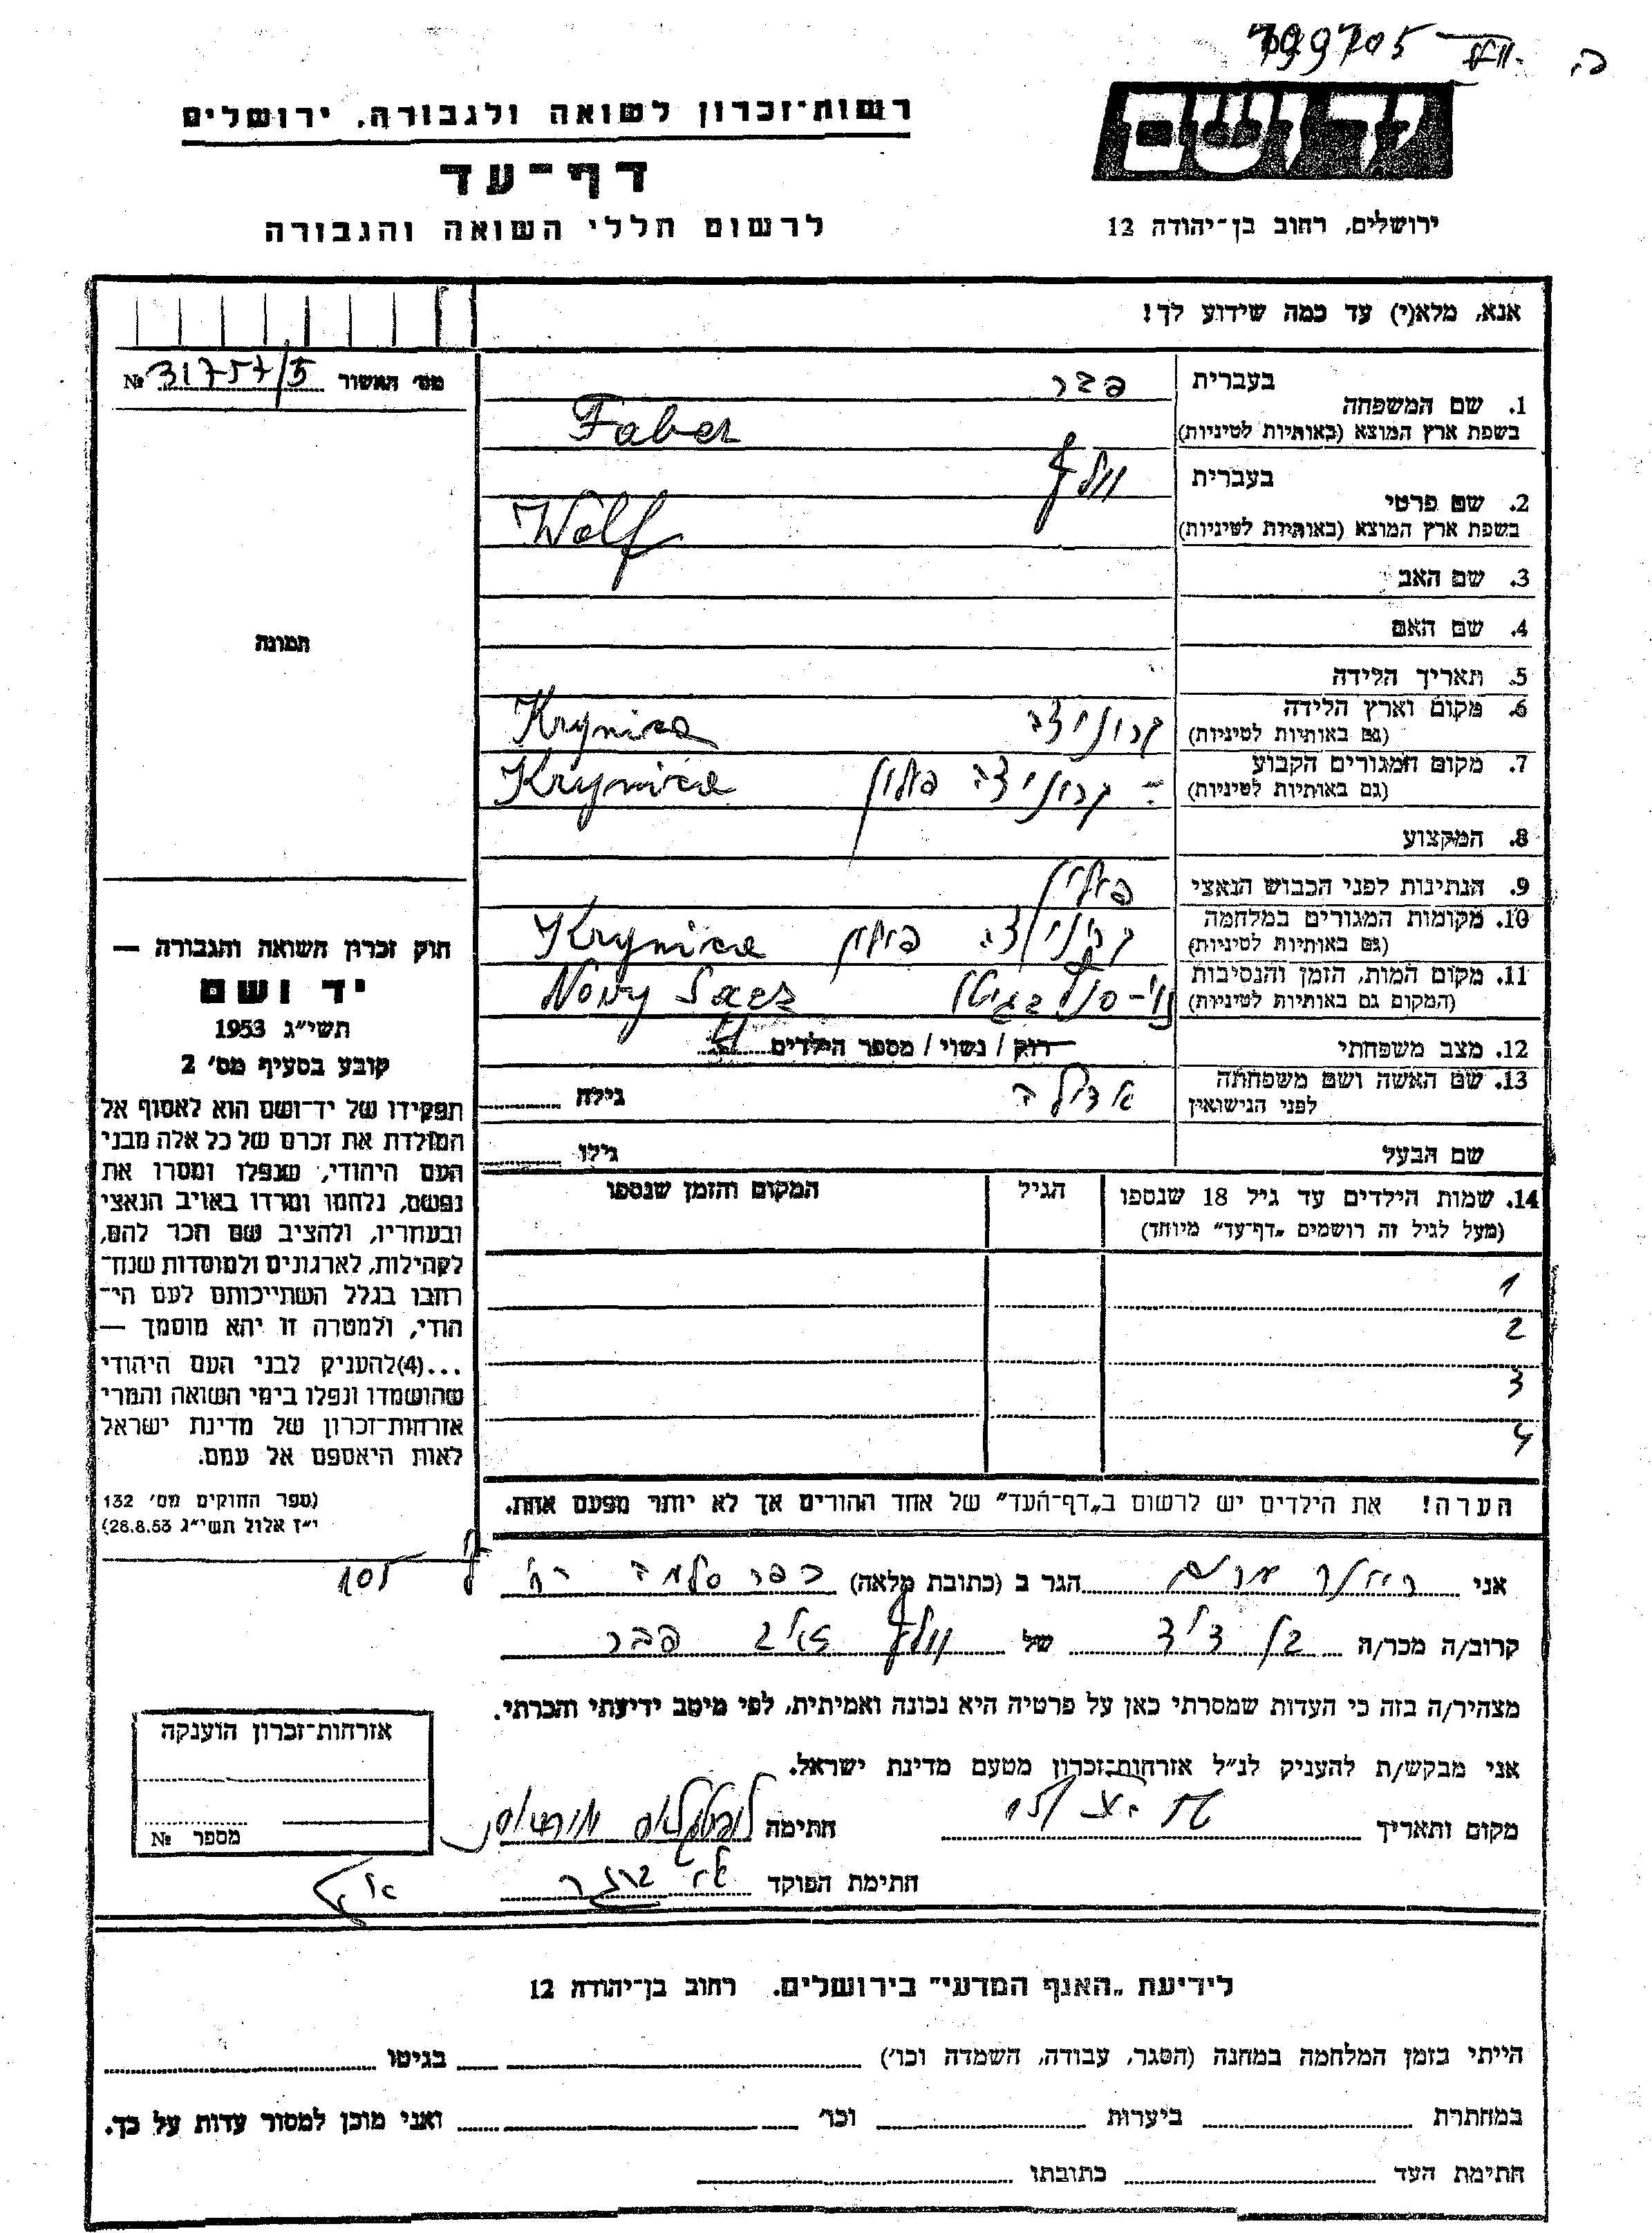 799705
יד ושם
ירושלים, רחוב בן־יהודה 12
רשות־זכרון לשואה ולגבורה, ירושלים
דף־עד
לרשום חללי השואה והגבורה
אנא, מלא(י) עד כמה שידוע לך!
מס׳ האשור 31757/5 №
תמונה
בעברית פבר
1. שם המשפחה
בשפת ארץ המוצא (באותיות לטיניות) Faber
בעברית וולף
2. שם פרטי
בשפת ארץ המוצא (באותיות לטיניות) Wolf
3. שם האב
4. שם האם
5. תאריך הלידה
6. מקום וארץ הלידה קרוניצה Krynica
(גם באותיות לטיניות)
7. מקום המגורים הקבוע קרוניצה פולין Krynica
(גם באותיות לטיניות)
8. המקצוע
9. הנתינות לפני הכבוש הנאצי פולין
10. מקומות המגורים במלחמה קרוניצה פולין Krynica
(גם באותיות לטיניות)
11. מקום המות, הזמן והנסיבות Nowy Sacz
(המקום גם באותיות לטיניות)
12. מצב משפחתי רווק / נשוי / מספר הילדים 4
13. שם האשה ושם משפחתה אדלה גילה
לפני הנישואין
שם הבעל גילו
14. שמות הילדים עד גיל 18 שנספו הגיל המקום והזמן שנספו
(מעל לגיל זה רושמים „דף־עד” מיוחד)
1
2
3
4
הערה! את הילדים יש לרשום ב„דף־העד” של אחד ההורים אך לא יותר מפעם אחת.
חוק זכרון השואה והגבורה —
יד ושם
תשי״ג 1953
קובע בסעיף מס׳ 2
תפקידו של יד־ושם הוא לאסוף אל
המולדת את זכרם של כל אלה מבני
העם היהודי, שנפלו ומסרו את
נפשם, נלחמו ומרדו באויב הנאצי
ובעוזריו, ולהציב שם וזכר להם,
לקהילות, לארגונים ולמוסדות שנח־
רבו בגלל השתייכותם לעם הי־
הודי, ולמטרה זו יהא מוסמך —
...(4) להעניק לבני העם היהודי
שהושמדו ונפלו בימי השואה והמרי
אזרחות־זכרון של מדינת ישראל
לאות היאספם אל עמם.
(ספר החוקים מס׳ 132
י״ז אלול תשי״ג 28.8.53)
אני הגר ב (כתובת מלאה) כפר סלמה רח׳
105
קרוב/ה מכר/ה בן דוד של וולף זאב פבר
מצהיר/ה בזה כי העדות שמסרתי כאן על פרטיה היא נכונה ואמיתית, לפי מיטב ידיעתי והכרתי.
אני מבקש/ת להעניק לנ״ל אזרחות־זכרון מטעם מדינת ישראל.
מקום ותאריך חתימה
חתימת הפוקד
אזרחות־זכרון הוענקה
מספר №
לידיעת „האגף המדעי” בירושלים. רחוב בן־יהודה 12
הייתי בזמן המלחמה במחנה (הסגר, עבודה, השמדה וכו׳) בגיטו
במחתרת ביערות וכו׳ ואני מוכן למסור עדות על כך.
חתימת העד כתובתו